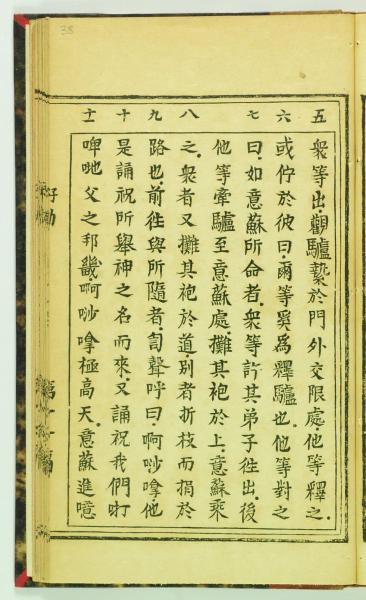 38
五 衆等出觀驢縶於門外交限處他等釋之.
六 或佇於彼曰.爾等奚為釋驢也.他等對之
七 曰.如意蘇所命者.衆等許其弟子徃出.後
他等牽驢至意蘇處.攤其袍於上.意蘇乘
八 之.衆者又攤其袍於道.別者折枝而捐於
九 路也.前徃與所隨者.訇聲呼曰.啊唦嗱他
十 是誦祝所舉神之名而來.又誦祝我們
十一 啤哋父之邦畿.啊唦嗱極高天.意蘇進噫